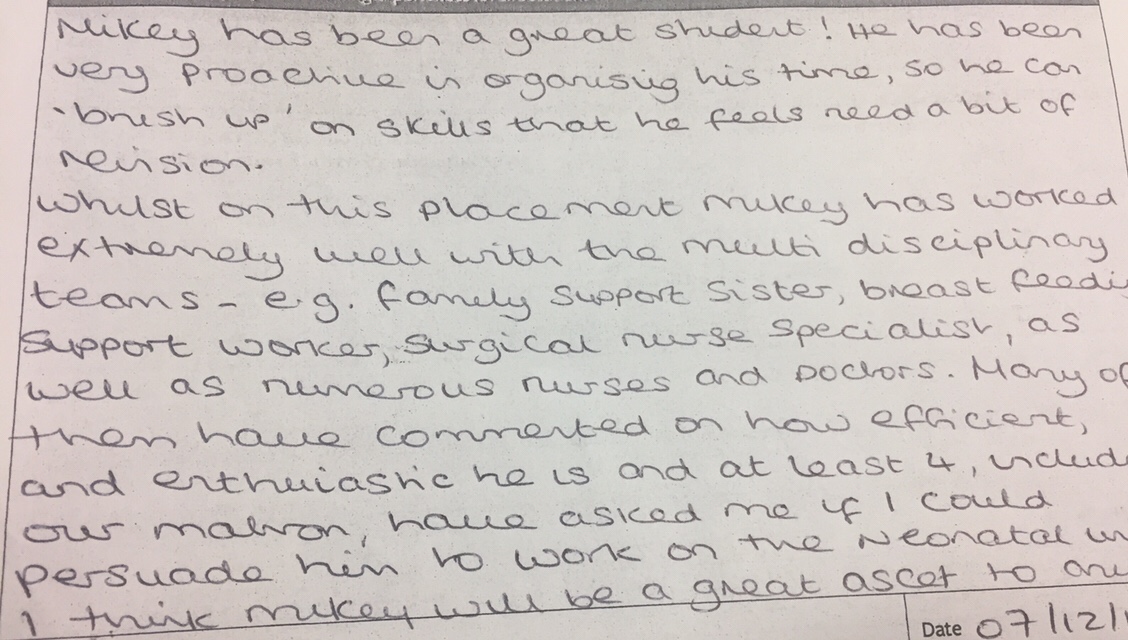 Mikey has been a great student! He has been
very proactive in organising his time, so he can
'brush up' on skills that he feels need a bit of
revision.
Whilst on this placement Mikey has worked
extremely well with the multi disciplinary
teams - e.g. family support Sister, breast feedi
support worker, surgical nurse specialist, as
well as numerous nurses and Doctors. Many of
them have commented on how efficient,
and enthuiastic he is and at least 4, includ
our matron, have asked me if I could
persuade him to work on the Neonatal un
I think Mikey will be a great ascet to
Date 07/12/